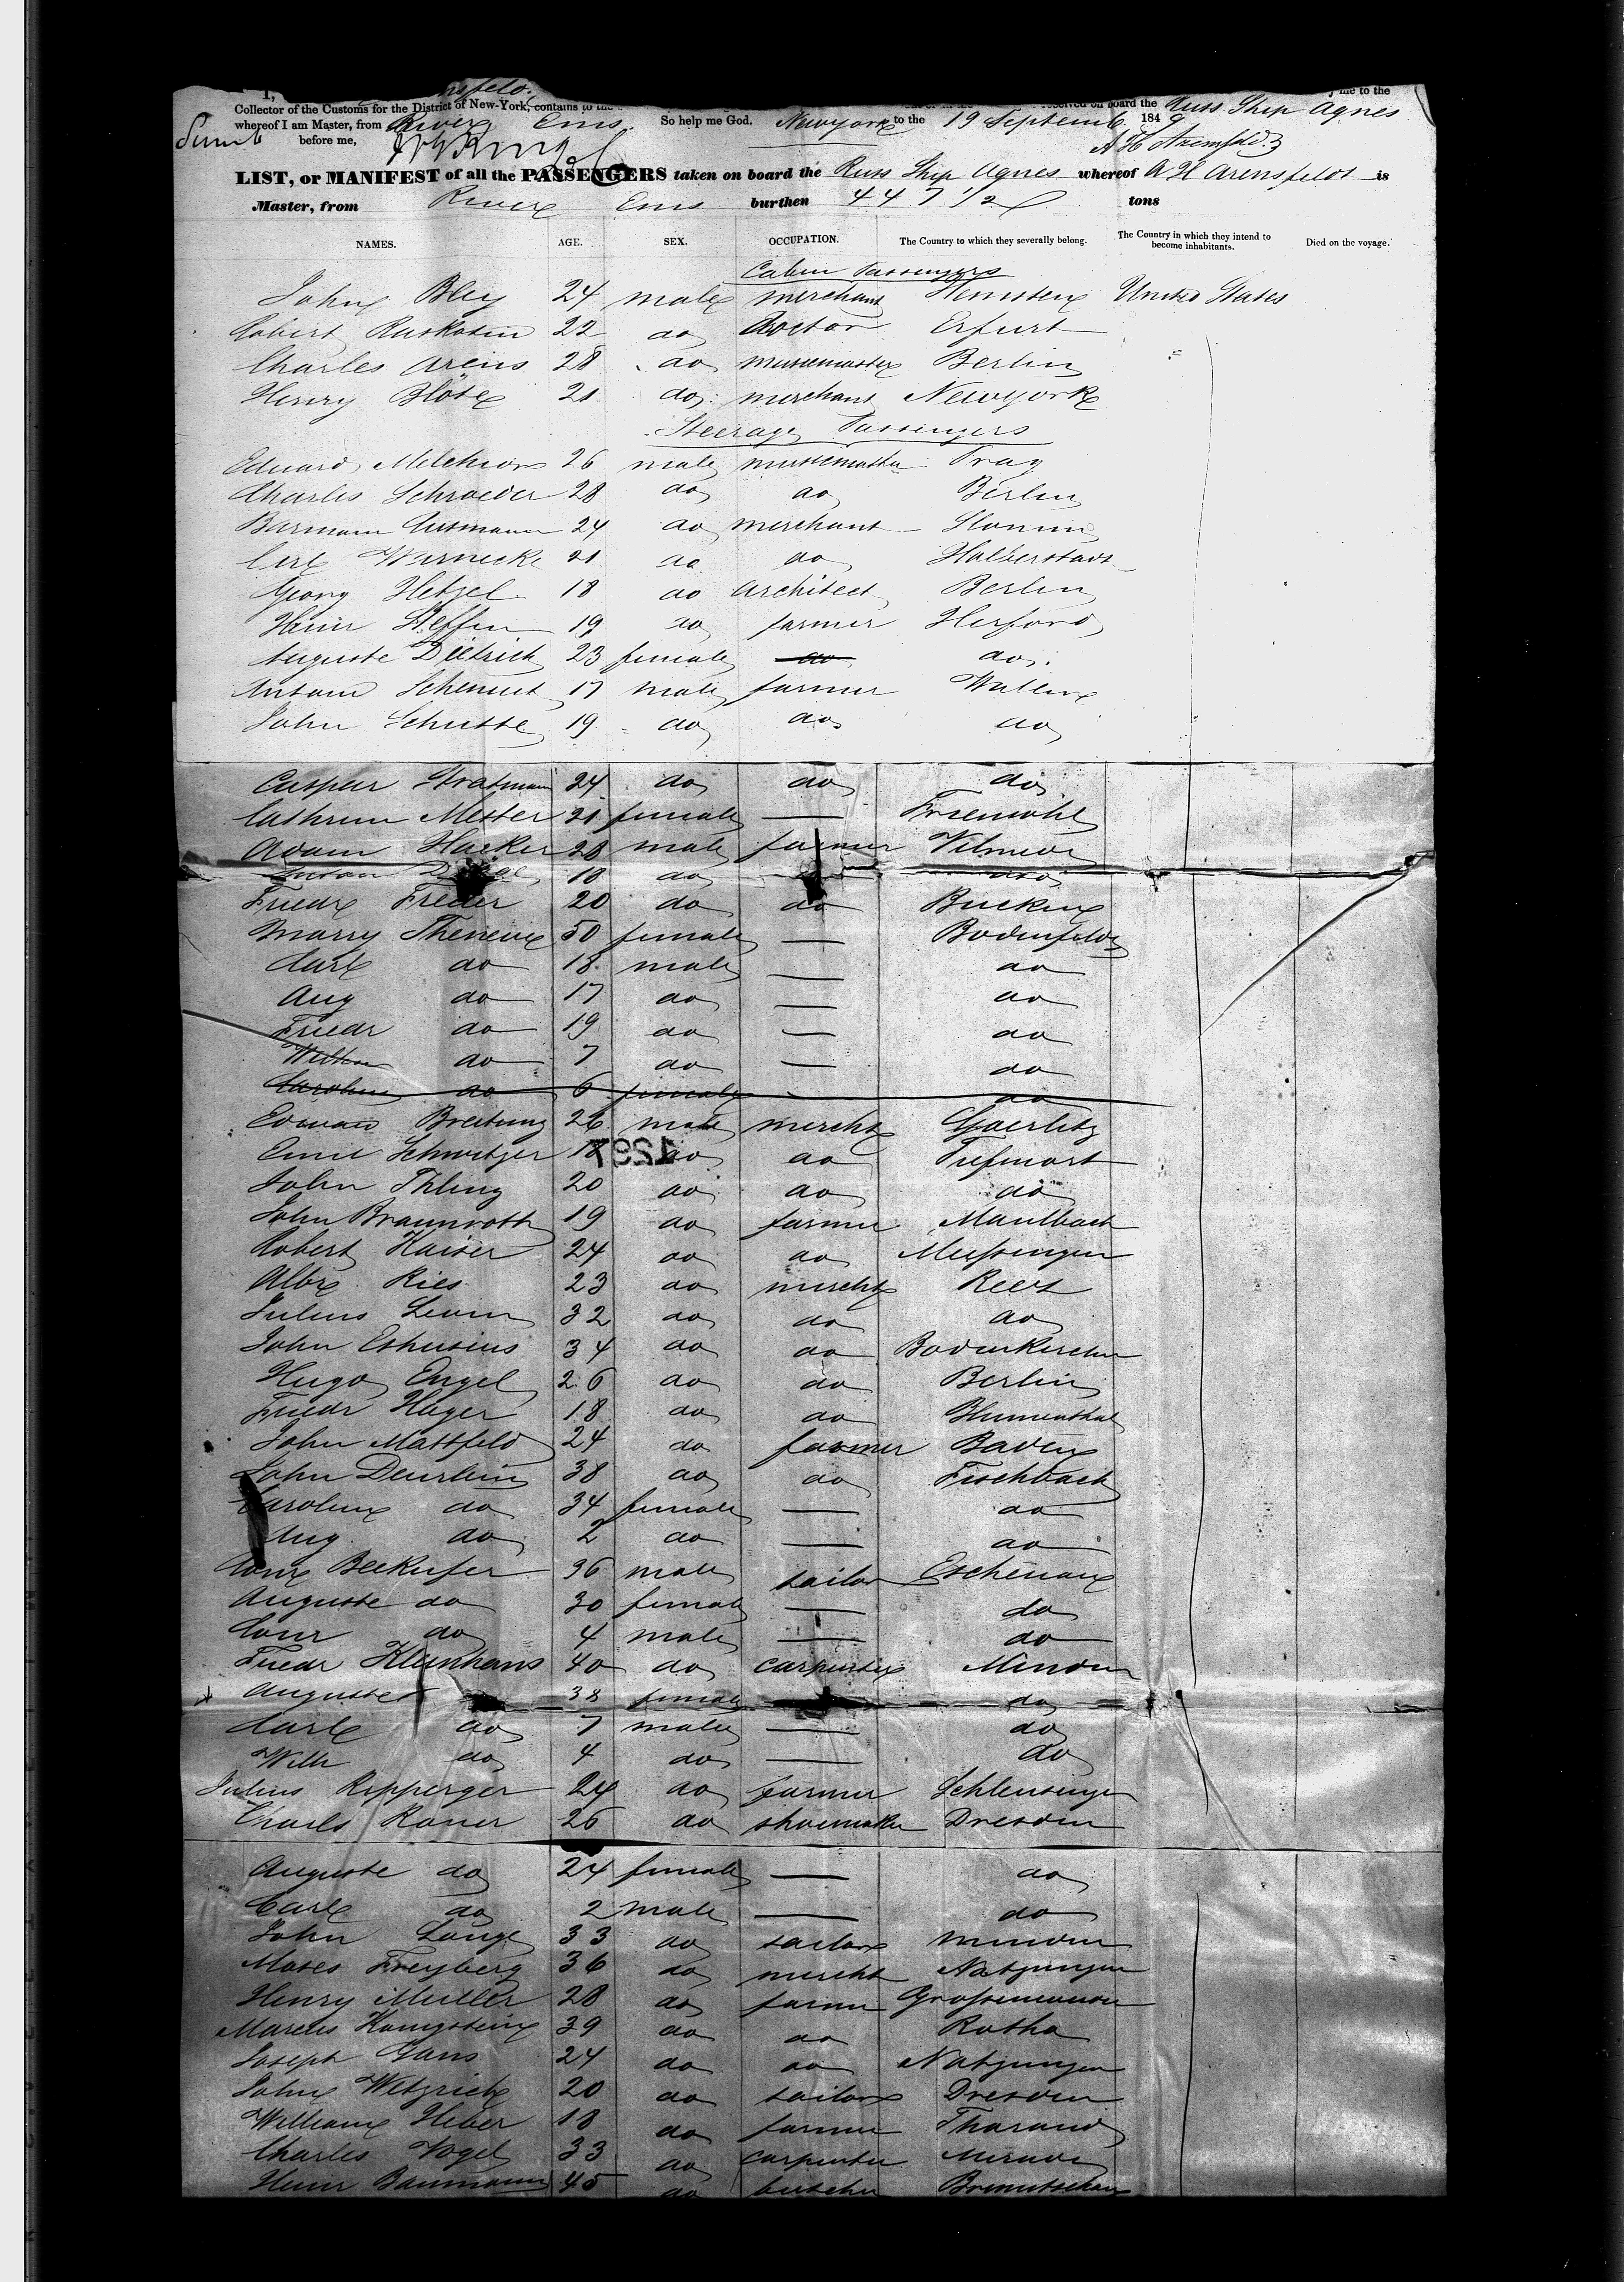 I,
me to the
Collector of the Customs for the District of New-York, contains to the on board the Russ. Ship Agnes
whereof I am Master, from River Ems. So help me God. Newyork to the 19 September 1849
before me,
LIST, or MANIFEST of all the PASSENGERS taken on board the Russ Ship Agnes whereof A H Arensfeldt is
Master, from River Ems burthen 447 1/2 tons
NAMES. AGE. SEX. OCCUPATION. The Country to which they severally belong. The Country in which they intend to become inhabitants. Died on the voyage.
Cabin Passengers
John Bley 24 male merchant United States
Robert 22 do Doctor Erfurt
Charles Arens 28 do Berlin
Henry Blöte 21 do merchant Newyork
Steerage Passengers
Eduard Melchior 26 male Prag
Charles Schroeder 28 do do Berlin
24 do merchant Slonim
Carl Warnecke 21 do do Halberstadt
Georg Hetzel 18 do architect Berlin
Heinr Steffen 19 do farmer Herford
Auguste Dietrich 23 female do do
17 male farmer
John Schutte 19 do do do
Caspar Stratmann 24 do do do
Mester 21 female — Freienohl
Adam Hacker 28 male farmer
Anton 18 do do
Friedr Freder 20 do do
Marry 50 female — Bodenfelde
Carl do 18 male — do
Aug do 17 do — do
Friedr do 19 do — do
Wilhm do 7 do — do
Caroline do 6 female — do
Edward Breitung 26 male mercht Goerlitz
Emil Schweitzer 18 do do
John Ihling 20 do do do
John Braunroth 19 do farmer Maulbach
Robert Kaiser 24 do do
Albr Ries 23 do mercht Rees
Julius Levin 32 do do do
John 34 do do Bodenkirchen
Hugo Engel 26 do do Berlin
Friedr Hager 18 do do Blumenthal
John Mattfeld 24 do farmer Baden
John Deurlein 38 do do Fischbach
Caroline do 34 female — do
Aug do 2 do — do
36 male tailor Eschenau
Auguste do 30 female — do
Conr do 4 male — do
Friedr Kleinhans 40 do carpenter Minden
Auguste 38 female do
Carl do 7 male — do
Wilh do 4 do — do
Julius Ripperger 24 do farmer Schleusingen
Charls 26 do shoemaker Dresden
Auguste do 24 female — do
Carl do 2 male — do
John Lange 33 do tailor Minden
Moses Freyberg 36 do mercht Natzungen
Henry Muller 28 do farmer
Marcus Konigstein 39 do do Rotha
Joseph Gans 24 do do Natzungen
John 20 do tailor Dresden
William Heber 18 do farmer Tharand
Charles Vogel 33 do carpenter
Heinr Baumann 45 do butcher